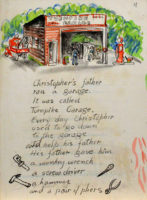 TURNPIKE
GARAGE
Christopher's father
ran a garage.
It was called
Turnpike Garage.
Every day Christopher
used to go down
to the garage
and help his father
His father gave him
a monkey wrench
a screw driver
a hammer
and a pair of pliers